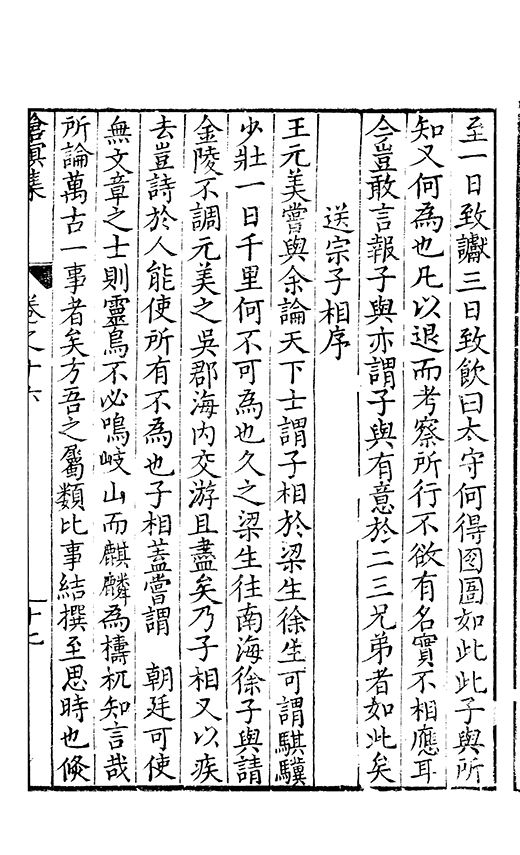 至一日致讞三日致飲曰太守何得囹圄如此此子與所
知又何為也凡以退而考察所行不欲有名實不相應耳
今豈敢言報子與亦謂子與有意於二三兄弟者如此矣
送宗子相序
王元美嘗與余論天下士謂子相於梁生徐生可謂騏驥
少壯一日千里何不可為也久之梁生往南海徐子與請
金陵不調元美之吳郡海内交游且盡矣乃子相又以疾
去豈詩於人能使所有不為也子相蓋嘗謂　朝廷可使
無文章之士則靈鳥不必鳴岐山而麒麟為檮杌知言哉
所論萬古一事者矣方吾之屬類比事結撰至思時也倏
滄溟集
卷之十六
十七